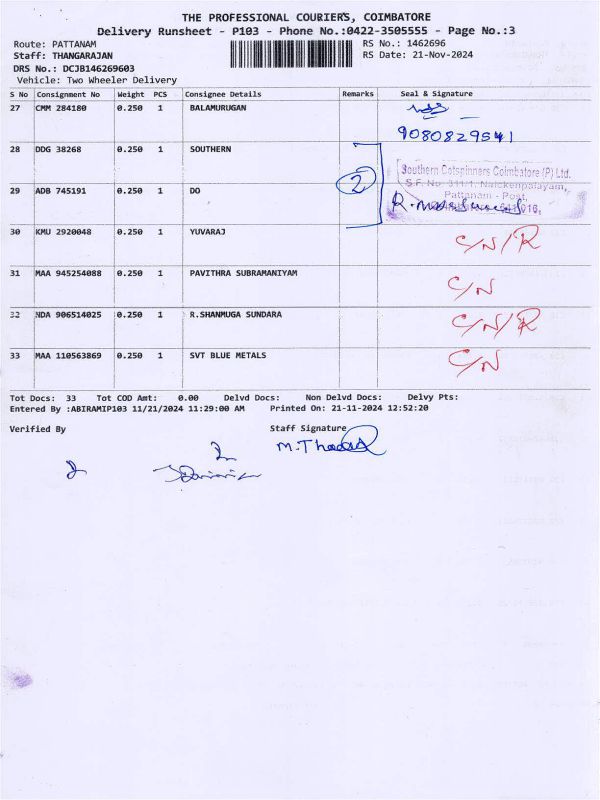 THE PROFESSIONAL COURIERS, COIMBATORE
Delivery Runsheet - P103 - Phone No.:0422-3505555 - Page No.:3
Route: PATTANAM
RS No.: 1462696
Staff: THANGARAJAN
RS Date: 21-Nov-2024
DRS No.: DCJB146269603
Vehicle: Two Wheeler Delivery
S No Consignment No Weight PCS Consignee Details Remarks Seal & Signature
27 CMM 284180 0.250 1 BALAMURUGAN
9080829541
28 DDG 38268 0.250 1 SOUTHERN
2
Southern Cotspinners Coimbatore (P) Ltd.
S.F. No. 311/1, Naickenpalayam,
Pattanam - Post,
29 ADB 745191 0.250 1 DO
30 KMU 2920048 0.250 1 YUVARAJ C/N/R
31 MAA 945254088 0.250 1 PAVITHRA SUBRAMANIYAM C/N
32 NDA 906514025 0.250 1 R.SHANMUGA SUNDARA C/N/R
33 MAA 110563869 0.250 1 SVT BLUE METALS C/N
Tot Docs: 33 Tot COD Amt: 0.00 Delvd Docs: Non Delvd Docs: Delvy Pts:
Entered By :ABIRAMIP103 11/21/2024 11:29:00 AM Printed On: 21-11-2024 12:52:20
Verified By Staff Signature